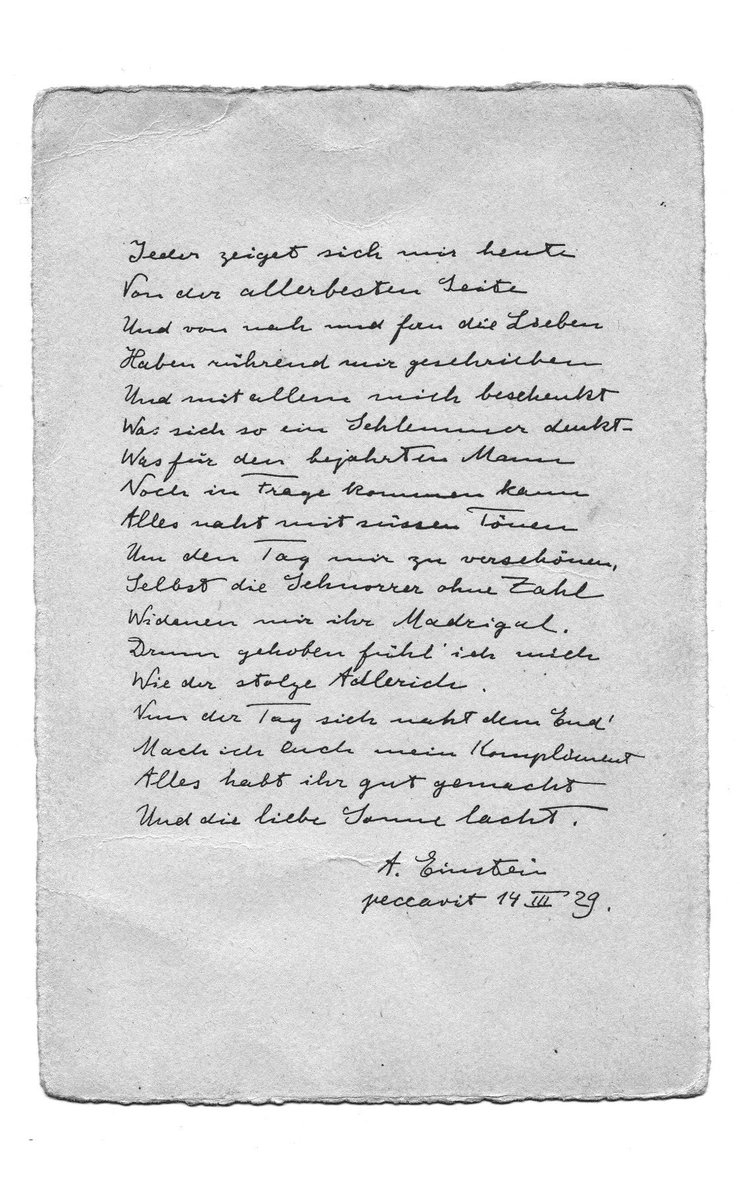 Jeder zeiget sich mir heute
Von der allerbesten Seite
Und von nah und fern die Lieben
Haben rührend mir geschrieben
Und mit allem mich beschenkt
Was sich so ein Schlemmer denkt-
Was für den bejahrten Mann
Noch in Frage kommen kann
Alles naht mit süssen Tönen
Um den Tag mir zu verschönen,
Selbst die Schnorrer ohne Zahl
Widmen mir ihr Madrigal.
Drum gehoben fühl' ich mich
Wie der stolze Adlerich.
Nun der Tag sich naht dem End'
Mach ich euch mein Kompliment
Alles habt ihr gut gemacht
Und die liebe Sonne lacht.
A. Einstein
peccavit 14 III 29.